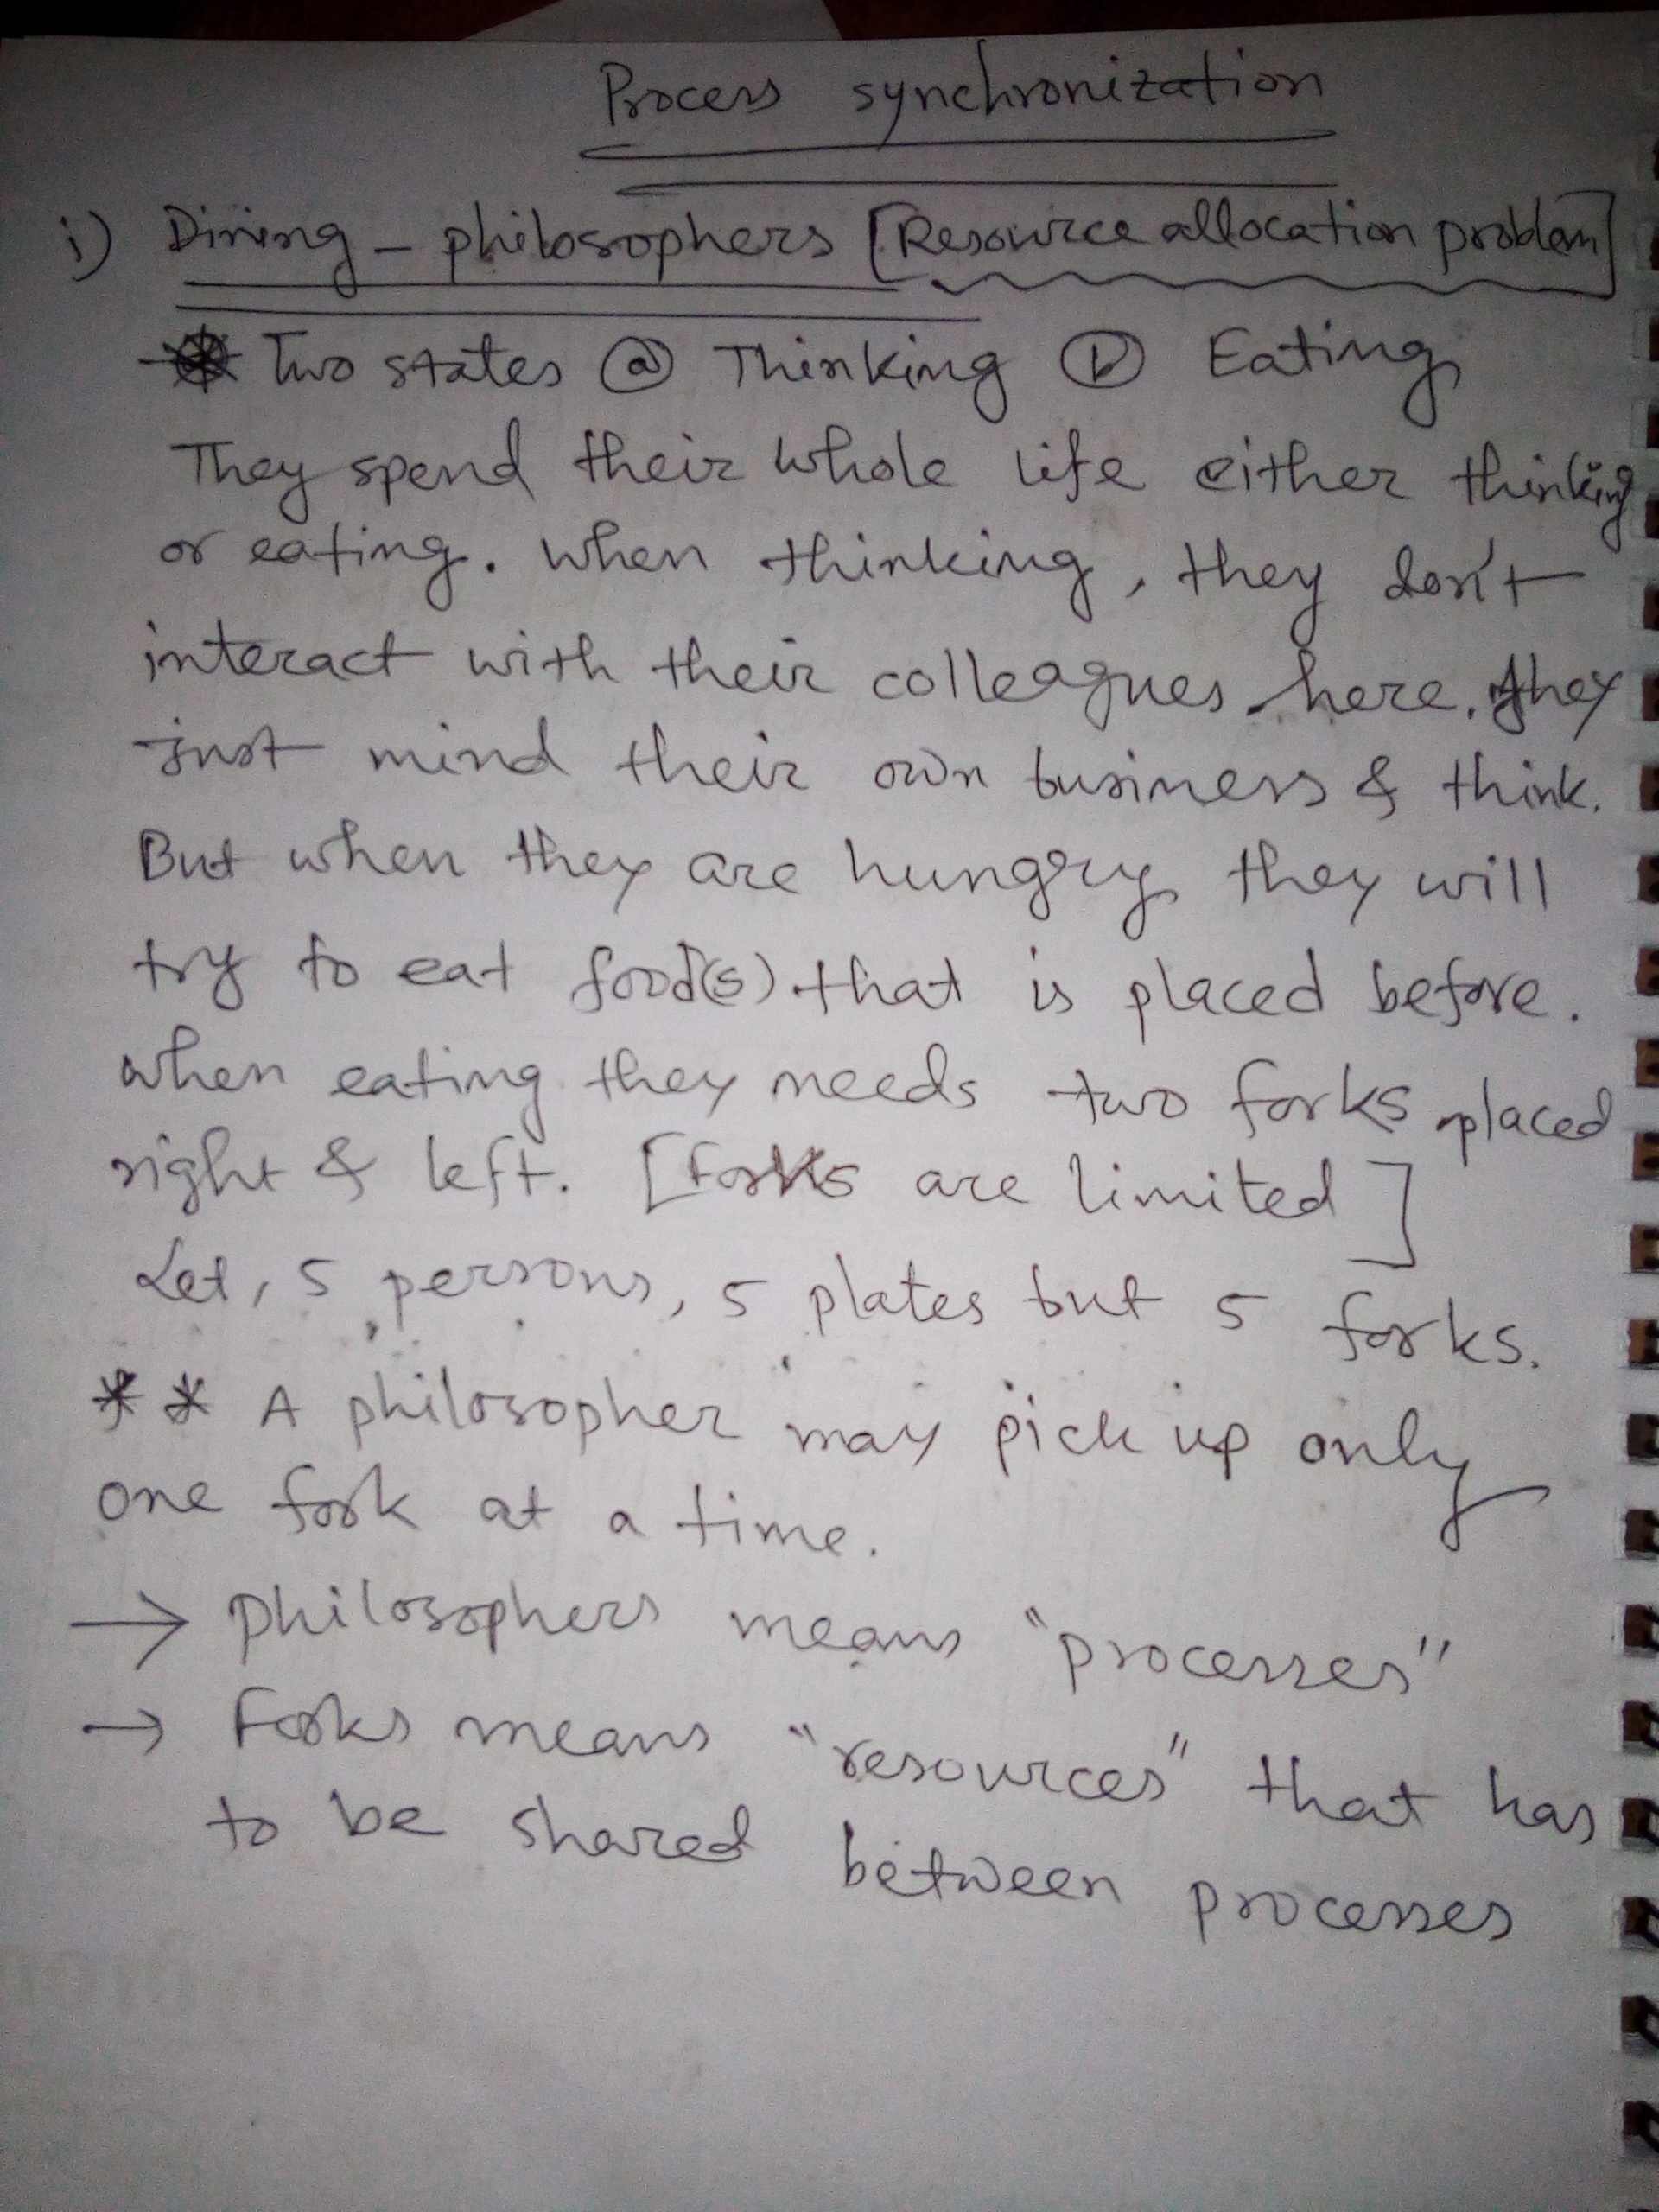 Process synchronization
i) Dining-philosophers [Resource allocation problem]
* Two states ⓐ Thinking ⓑ Eating
They spend their whole life either thinking
or eating. When thinking, they don't
interact with their colleagues here. they
just mind their own business & think.
But when they are hungry they will
try to eat food(s) that is placed before.
when eating they needs two forks placed
right & left. [Forks are limited]
Let, 5 persons, 5 plates but 5 forks.
** A philosopher may pick up only
one fork at a time.
→ Philosophers means "processes"
→ Forks means "resources" that has
to be shared between processes